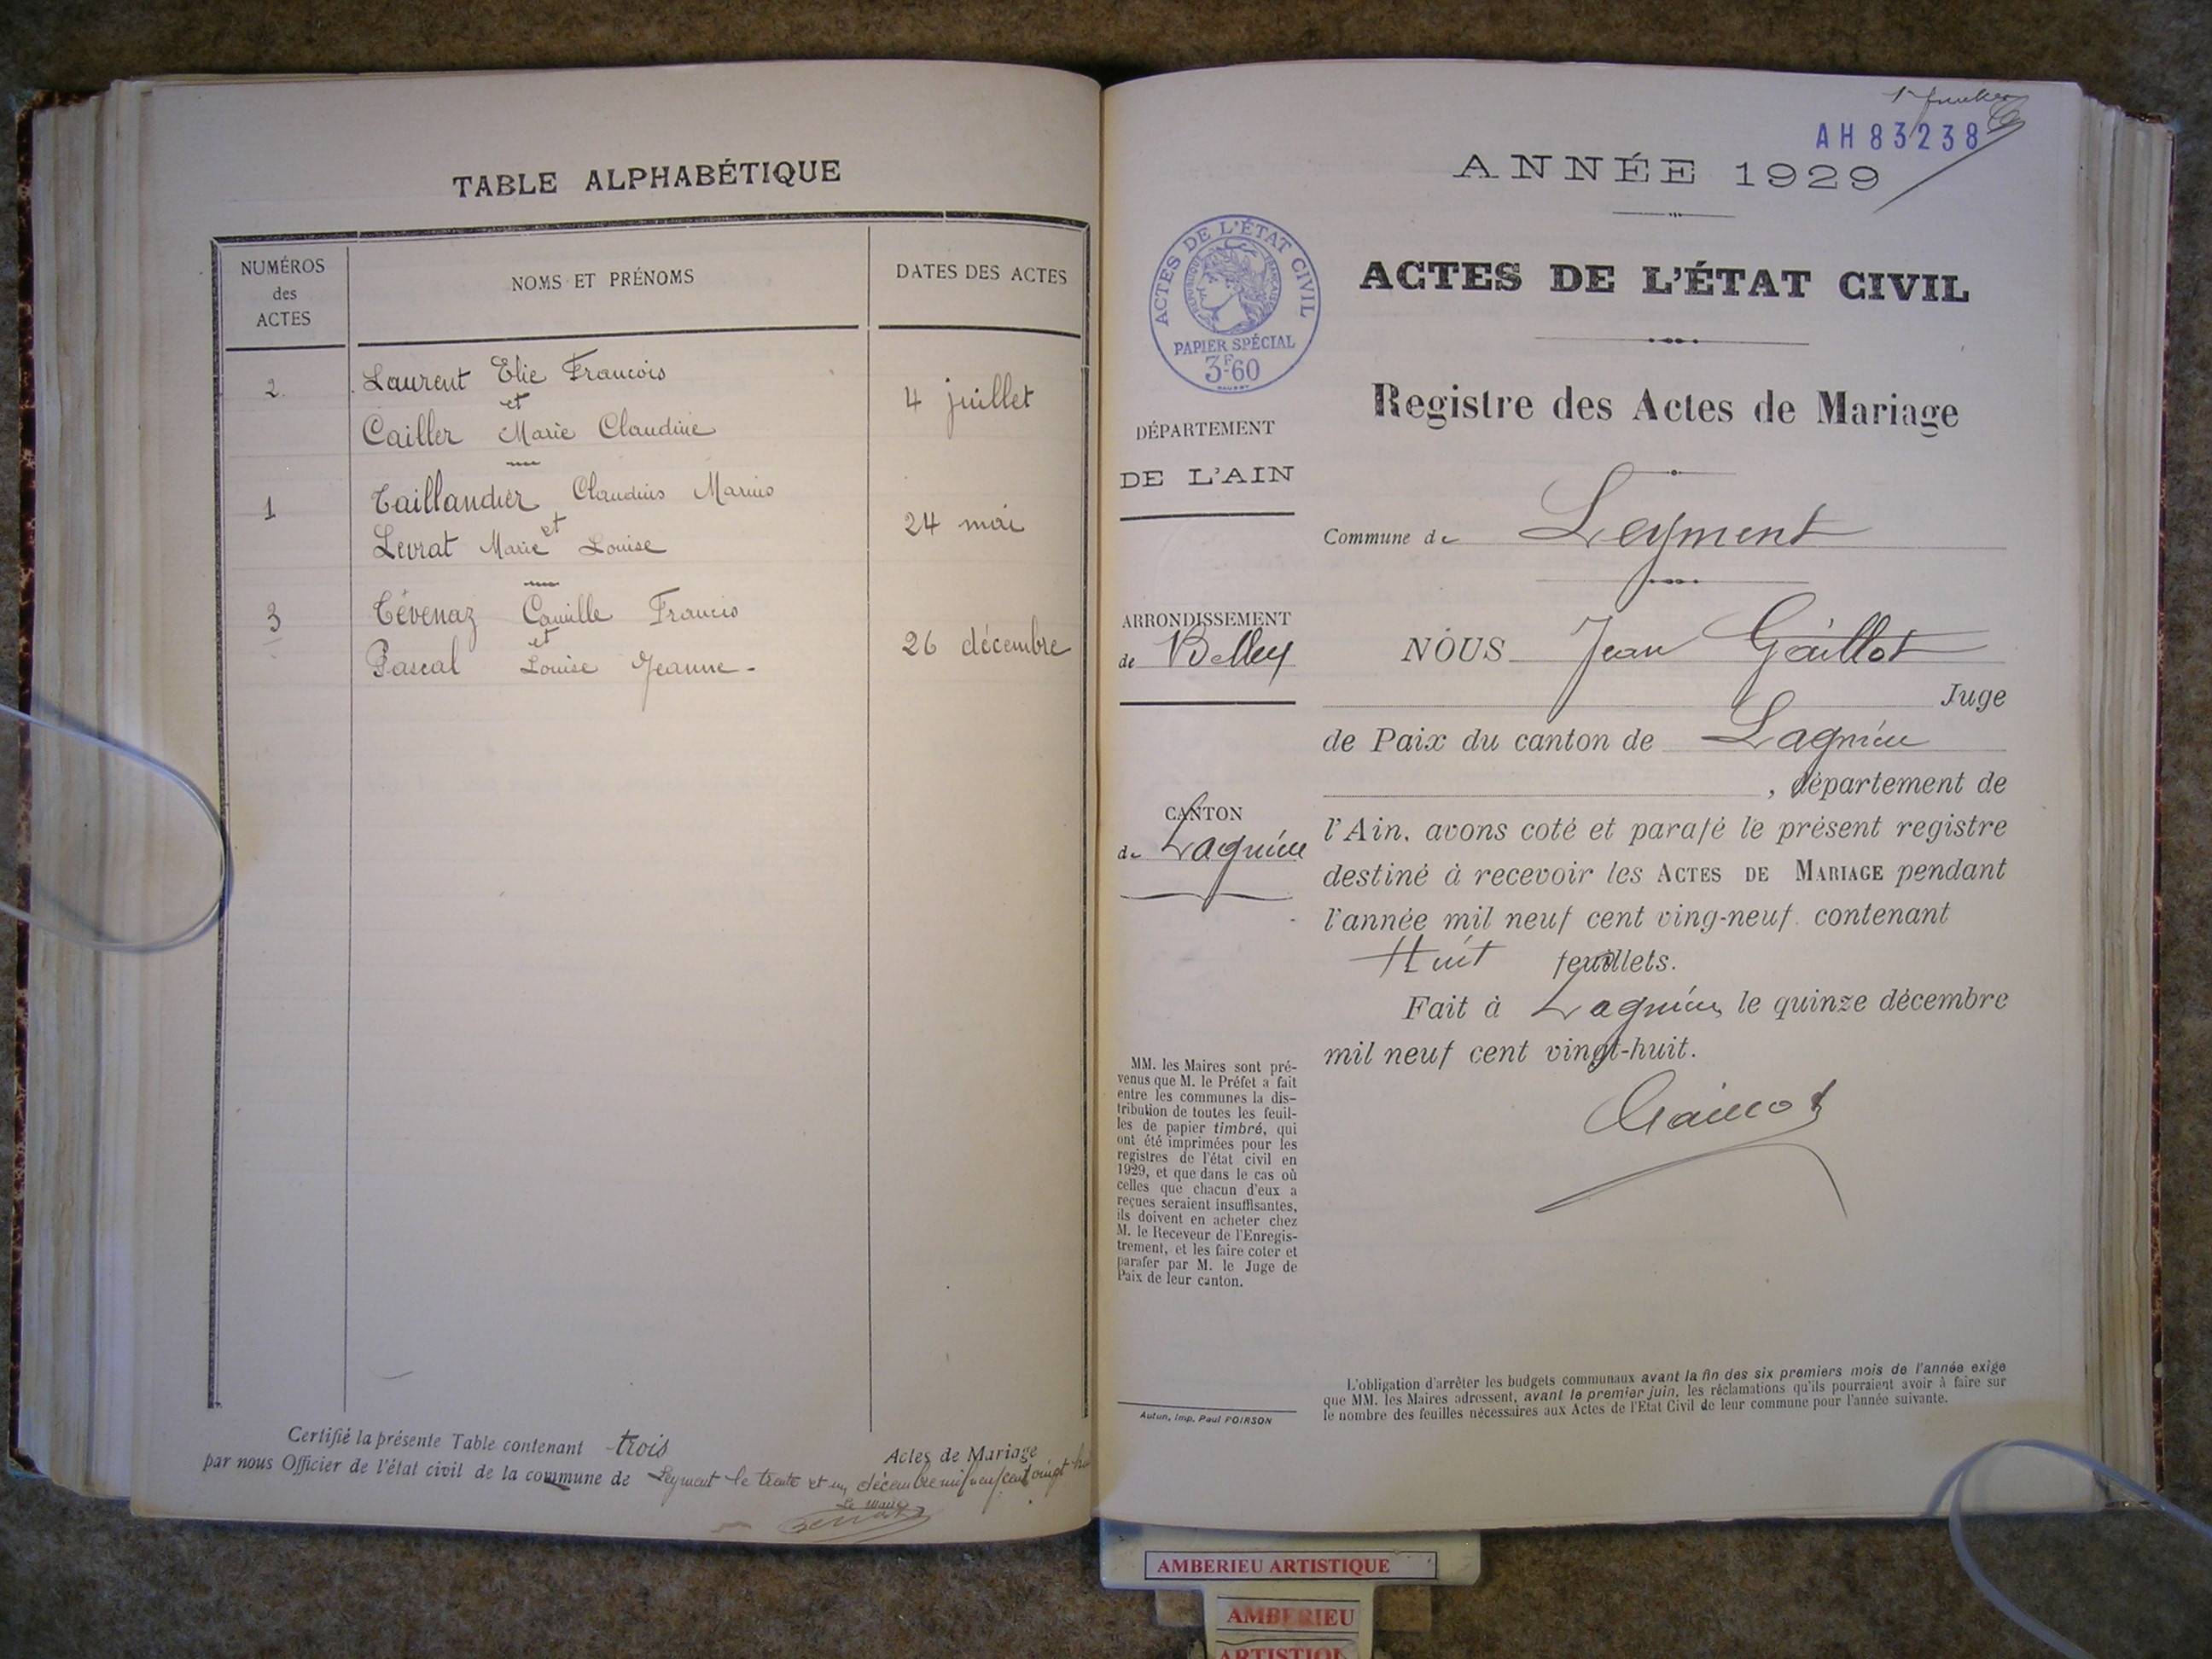 TABLE ALPHABÉTIQUE
NUMÉROS
des
ACTES
NOMS ET PRÉNOMS
DATES DES ACTES
2
Laurent Elie Francois
et
Cailler Marie Claudine
4 juillet
1
Taillandier Claudius Marius
et
Levrat Marie Louise
24 mai
3
Tévenaz Camille Francis
et
Pascal Louise Jeanne -
26 décembre
Certifié la présente Table contenant trois Actes de Mariage
par nous Officier de l'état civil de la commune de Leyment le trente et un décembre mil neuf cent vingt
Le Maire
AH 83238
ANNÉE 1929
ACTES DE L'ÉTAT CIVIL
RÉPUBLIQUE FRANÇAISE
PAPIER SPÉCIAL
3F60
ACTES DE L'ÉTAT CIVIL
Registre des Actes de Mariage
DÉPARTEMENT
DE L'AIN
Commune de Leyment
ARRONDISSEMENT
de Belley
CANTON
de Lagnieu
NOUS Jean Gaillot
Juge
de Paix du canton de Lagnieu
, département de
l'Ain, avons coté et parafé le présent registre
destiné à recevoir les ACTES DE MARIAGE pendant
l'année mil neuf cent ving-neuf. contenant
Huit feuillets.
Fait à Lagnieu, le quinze décembre
mil neuf cent vingt-huit.
MM. les Maires sont pré-
venus que M. le Préfet a fait
entre les communes la dis-
tribution de toutes les feuil-
les de papier timbré, qui
ont été imprimées pour les
registres de l'état civil en
1929, et que dans le cas où
celles que chacun d'eux a
reçues seraient insuffisantes,
ils doivent en acheter chez
M. le Receveur de l'Enregis-
trement, et les faire coter et
parafer par M. le Juge de
Paix de leur canton.
Autun, Imp. Paul POIRSON
L'obligation d'arrêter les budgets communaux avant la fin des six premiers mois de l'année exige
que MM. les Maires adressent, avant le premier juin, les réclamations qu'ils pourraient avoir à faire sur
le nombre des feuilles nécessaires aux Actes de l'Etat Civil de leur commune pour l'année suivante.
AMBERIEU ARTISTIQUE
AMBERIEU